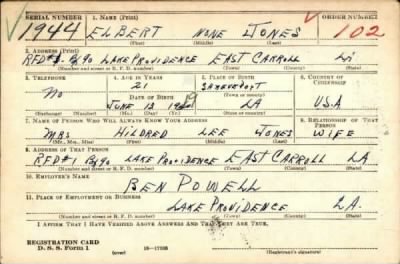 SERIAL NUMBER 1. NAME (Print) ORDER NUMBER
1944 ELBERT NONE JONES 102
(First) (Middle) (Last)
2. ADDRESS (Print)
RFD#1 Bx90 LAKE PROVIDENCE EAST CARROLL
(Number and street or R. F. D. number) (Town) (County) (State)
3. TELEPHONE 4. AGE IN YEARS 5. PLACE OF BIRTH 6. COUNTRY OF CITIZENSHIP
No 21
DATE OF BIRTH
JUNE 13 LA U.S.A
(Mo.) (Day) (Yr.) (State or country)
7. NAME OF PERSON WHO WILL ALWAYS KNOW YOUR ADDRESS 8. RELATIONSHIP OF THAT PERSON
MRS HILDRED LEE JONES WIFE
(Mr., Mrs., Miss) (First) (Middle) (Last)
9. ADDRESS OF THAT PERSON
RFD#1 Bx90 LAKE PROVIDENCE EAST CARROLL LA
(Number and street or R. F. D. number) (Town) (County) (State)
10. EMPLOYER'S NAME
BEN POWELL
11. PLACE OF EMPLOYMENT OR BUSINESS
LAKE PROVIDENCE LA.
(Number and street or R. F. D. number) (Town) (County) (State)
I AFFIRM THAT I HAVE VERIFIED ABOVE ANSWERS AND THAT THEY ARE TRUE.
REGISTRATION CARD
D. S. S. Form 1 (over) 16-17105 (Registrant's signature)